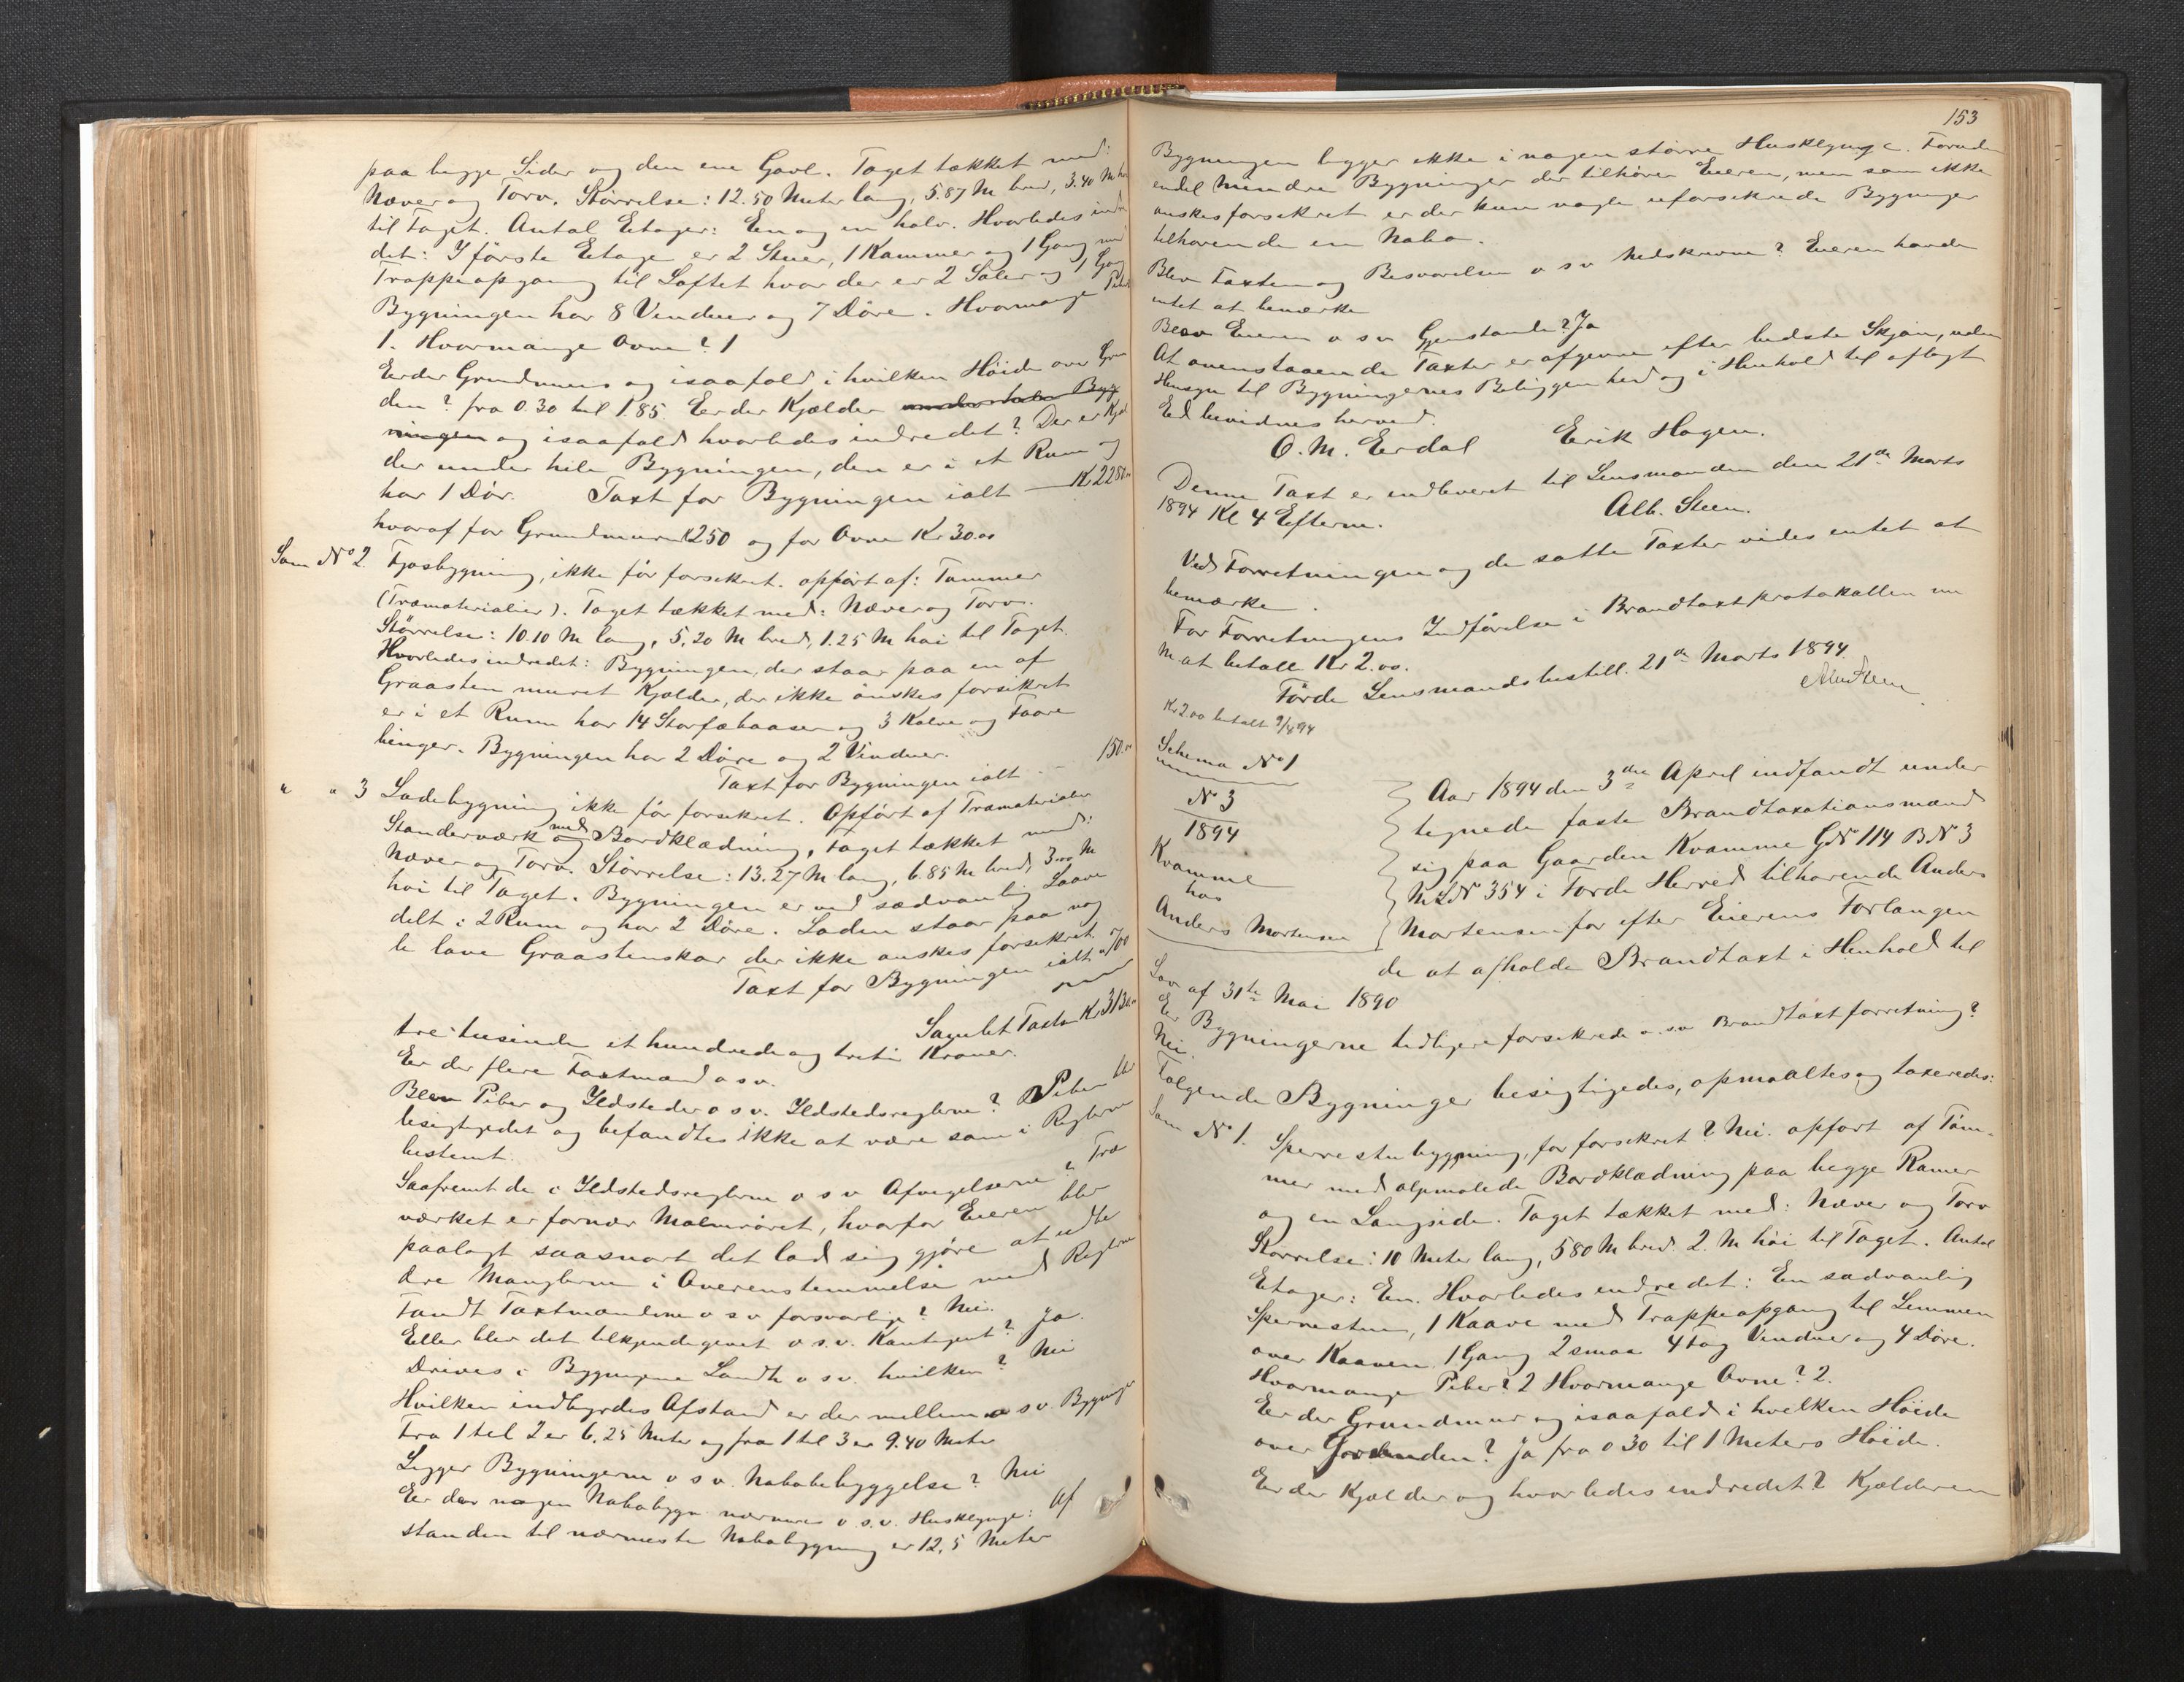 paa begge Sider og den ene Gavl. Taget tækket med:
Næver og Torv. Störrelse: 12.50 Meter lang, 5.87 M bred, 3.40 M
til Taget. Antal Etager: En og en halv. Hvorledes indre
det: I förste Etage er 2 Stuer, 1 Kammer og 1 Gang med
Trappeopgang til Loftet hvor der er 2 Saler og 1 Gang
Bygningen har 8 Vinduer og 7 Döre. Hvormange Piber
1. Hvormange Ovne? 1
Er der Grundmur og isaafald i hvilken Höide over Grun
den? fra 0.30 til 1.85 Er der Kjælder under hele Byg
ningen og isaafald hvorledes indredet? Der er Kjæl
der under hele Bygningen, den er i et Rum og
har 1 Dör. Taxt for Bygningen ialt — Kr 2250.00
hvoraf for Grundmuren 250 og for Ovne Kr 30.00
Som No 2. Fjøsbygning, ikke för forsikret. opfört af: Tømmer
(Træmaterialier). Taget tækket med: Næver og Torv.
Störrelse: 10.10 M lang, 5,20 M bred, 1.25 M höi til Taget.
Hvorledes indredet: Bygningen, der staar paa en af
Graasten muret Kjælder, der ikke önskes forsikret
er i et Rum har 14 Storfæbaaser og 3 Kalve og Faare
binger. Bygningen har 2 Döre og 2 Vinduer.
Taxt for Bygningen ialt — 150.00
" " 3 Ladebygning ikke för forsikret. Opfört af Træmaterialier
Standerværk og med Bordklædning, Taget tækket med:
Næver og Torv. Störrelse: 13.27 M lang, 6.85 M bred, 3.00 M
höi til Taget. Bygningen er ved sædvanlig Laave
delt i 2 Rum og har 2 Döre. Laden staar paa nog
le lave Graastenskar der ikke ønskes forsikret.
Taxt for Bygningen ialt
Samlet Taxt Kr 3130.00
tre tusinde et hundrede og treti Kroner.
Er der flere Taxtmænd o s v.
Blev Piber og Ildsteder o s v. Ildstedsreglerne? Piben blev
besigtiget og befandtes ikke at være som i Reglerne
bestemt.
Saafremt de i Ildstedsreglerne o s v Afvigelserne? Træ
værket er fornær Malmröret, hvorfor Eieren blev
paalagt saasnart det lod sig gjøre at udbe
dre Manglerne i Overenstemmelse med Reglerne
Fandt Taxtmændene o s v forsvarlige? Nei.
Eller blev det tilkjendegivet o. s. v. Kontigent? Ja.
Drives i Bygningerne Landh o s v. hvilken? Nei
Hvilken indbyrdes Afstand er der mellem o s v. Bygninger
Fra 1 til 2 er 6.25 Meter og fra 1 til 3 er 9.40 Meter
Ligger Bygningerne o s v. Nabobebyggelse? Nei
Er der nogen Nabobygn nærmere o. s. v. Husklynge: Af
standen til nærmeste Nabobygning er 12,5 Meter
153
Bygningen ligger ikke i nogen större Husklynge. Foruden
endel mindre Bygninger der tilhörer Eieren, men som ikke
önskes forsikret er der kun nogle uforsikrede Bygninger
tilhørende en Nabo.
Blev Taxten og Besvarelsen o s v Nedskrevne? Eieren havde
intet at bemærke
Beav Eieren o s v Gjenstande? Ja
At ovenstaaende Taxter er afgivne efter bedste Skjön, uden
Hensyn til Bygningernes Beliggenhed og i Henhold til aflagt
Ed bevidnes herved.
O. M. Erdal Erik Hagen.
Denne Taxt er indleveret til Lensmanden den 21de Marts
1894 Kl 4 Efterm. Alb. Steen.
Ved Forretningen og de satte Taxter vides intet at
bemærke.
For Forretningens Indförelse i Brandtaxtprotokollen m
M. at betale Kr 2.00.
Förde Lensmandsbestill. 21de Marts 1894.
Alb Steen
Kr 2.00 betalt 9/4 94
Schema No 1
No 3
1894
Kvamme
hos
Anders Mortensen
Aar 1894 den 3die April indfandt under
tegnede faste Brandtaxationsmænd
sig paa Gaarden Kvamme GNo 114 BNo 3
MLNo 354 i Förde Herred tilhørende Anders
Mortensen for efter Eierens Forlangen
de at afholde Brandtaxt i Henhold til
Lov af 31te Mai 1890
Er Bygningerne tidligere forsikrede o. s. v Brandtaxtforretning?
Nei.
Følgende Bygninger besigtigedes, opmaaltes og taxeredes:
Som No 1. Sperrestubygning, för forsikret? Nei. opfört af Töm-
mer med oljemalede Bordklædning paa begge Ramer
og en Langside. Taget tækket med: Næver og Torv
Störrelse: 10 Meter lang, 5.80 M bred. 2. M höi til Taget. Antal
Etager: En. Hvorledes indredet: En sædvanlig
Sperrestue, 1 Kaave med Trappeopgang til Lemmen
over Kaaven. 1 Gang 2 smaa 4 fag Vinduer og 4 Döre.
Hvormange Piber? 2 Hvormange Ovne? 2.
Er der Grundmur og isaafald i hvilken Höide
over Grunden? Ja fra 0 30 til 1 Meters Höide.
Er der Kjælder og hvorledes indredet? Kjælderen